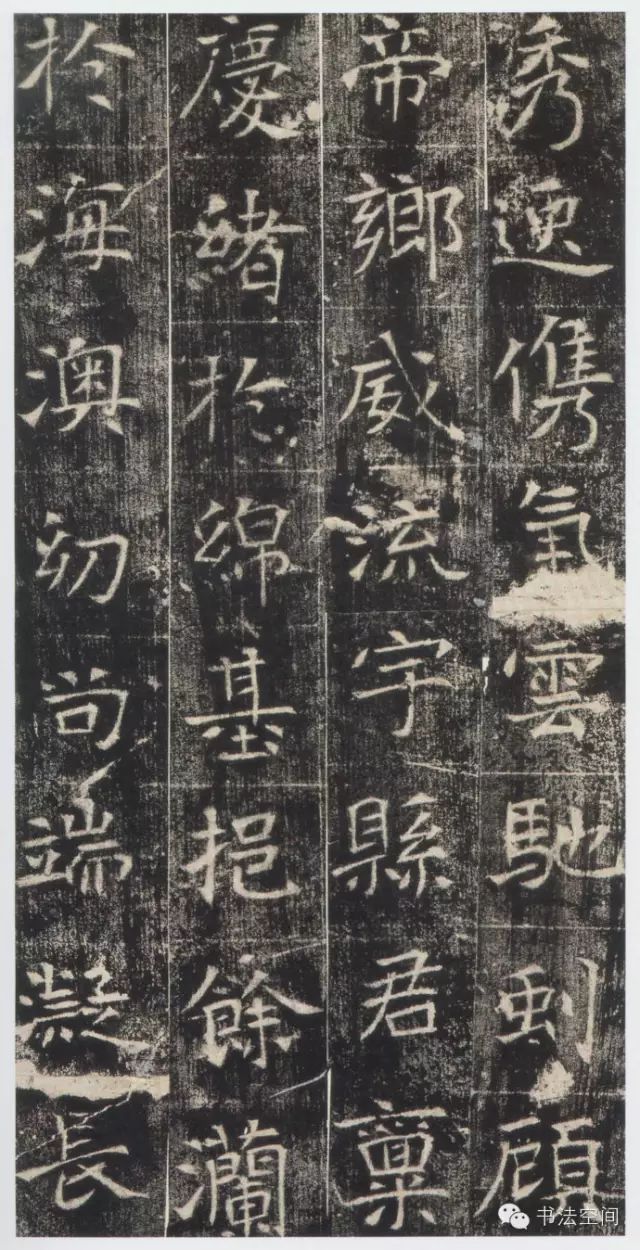 秀速儁氣雲馳顧
帝鄉威流宇縣君稟
慶緒於綿基挹餘瀾
於海澳幼尚端凝長
书法空间